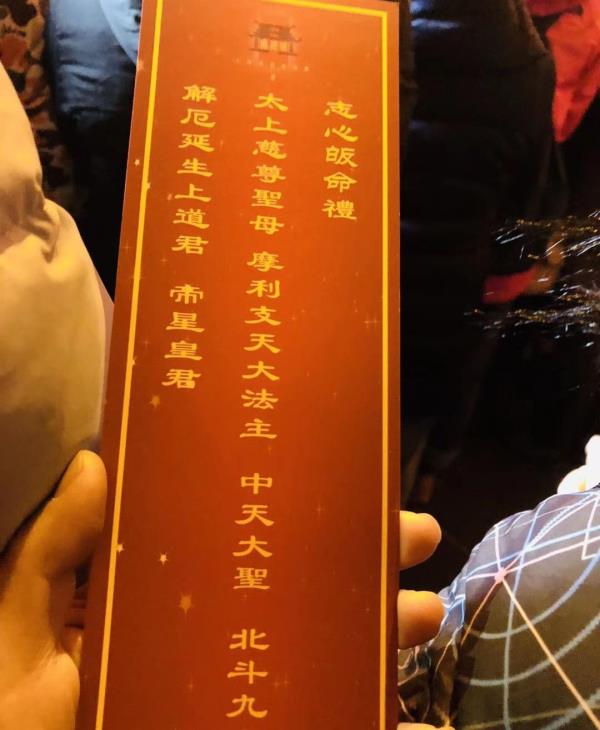 志心皈命禮
太上慈尊聖母 摩利支天大法主 中天大聖 北斗九
解厄延生上道君 帝星皇君